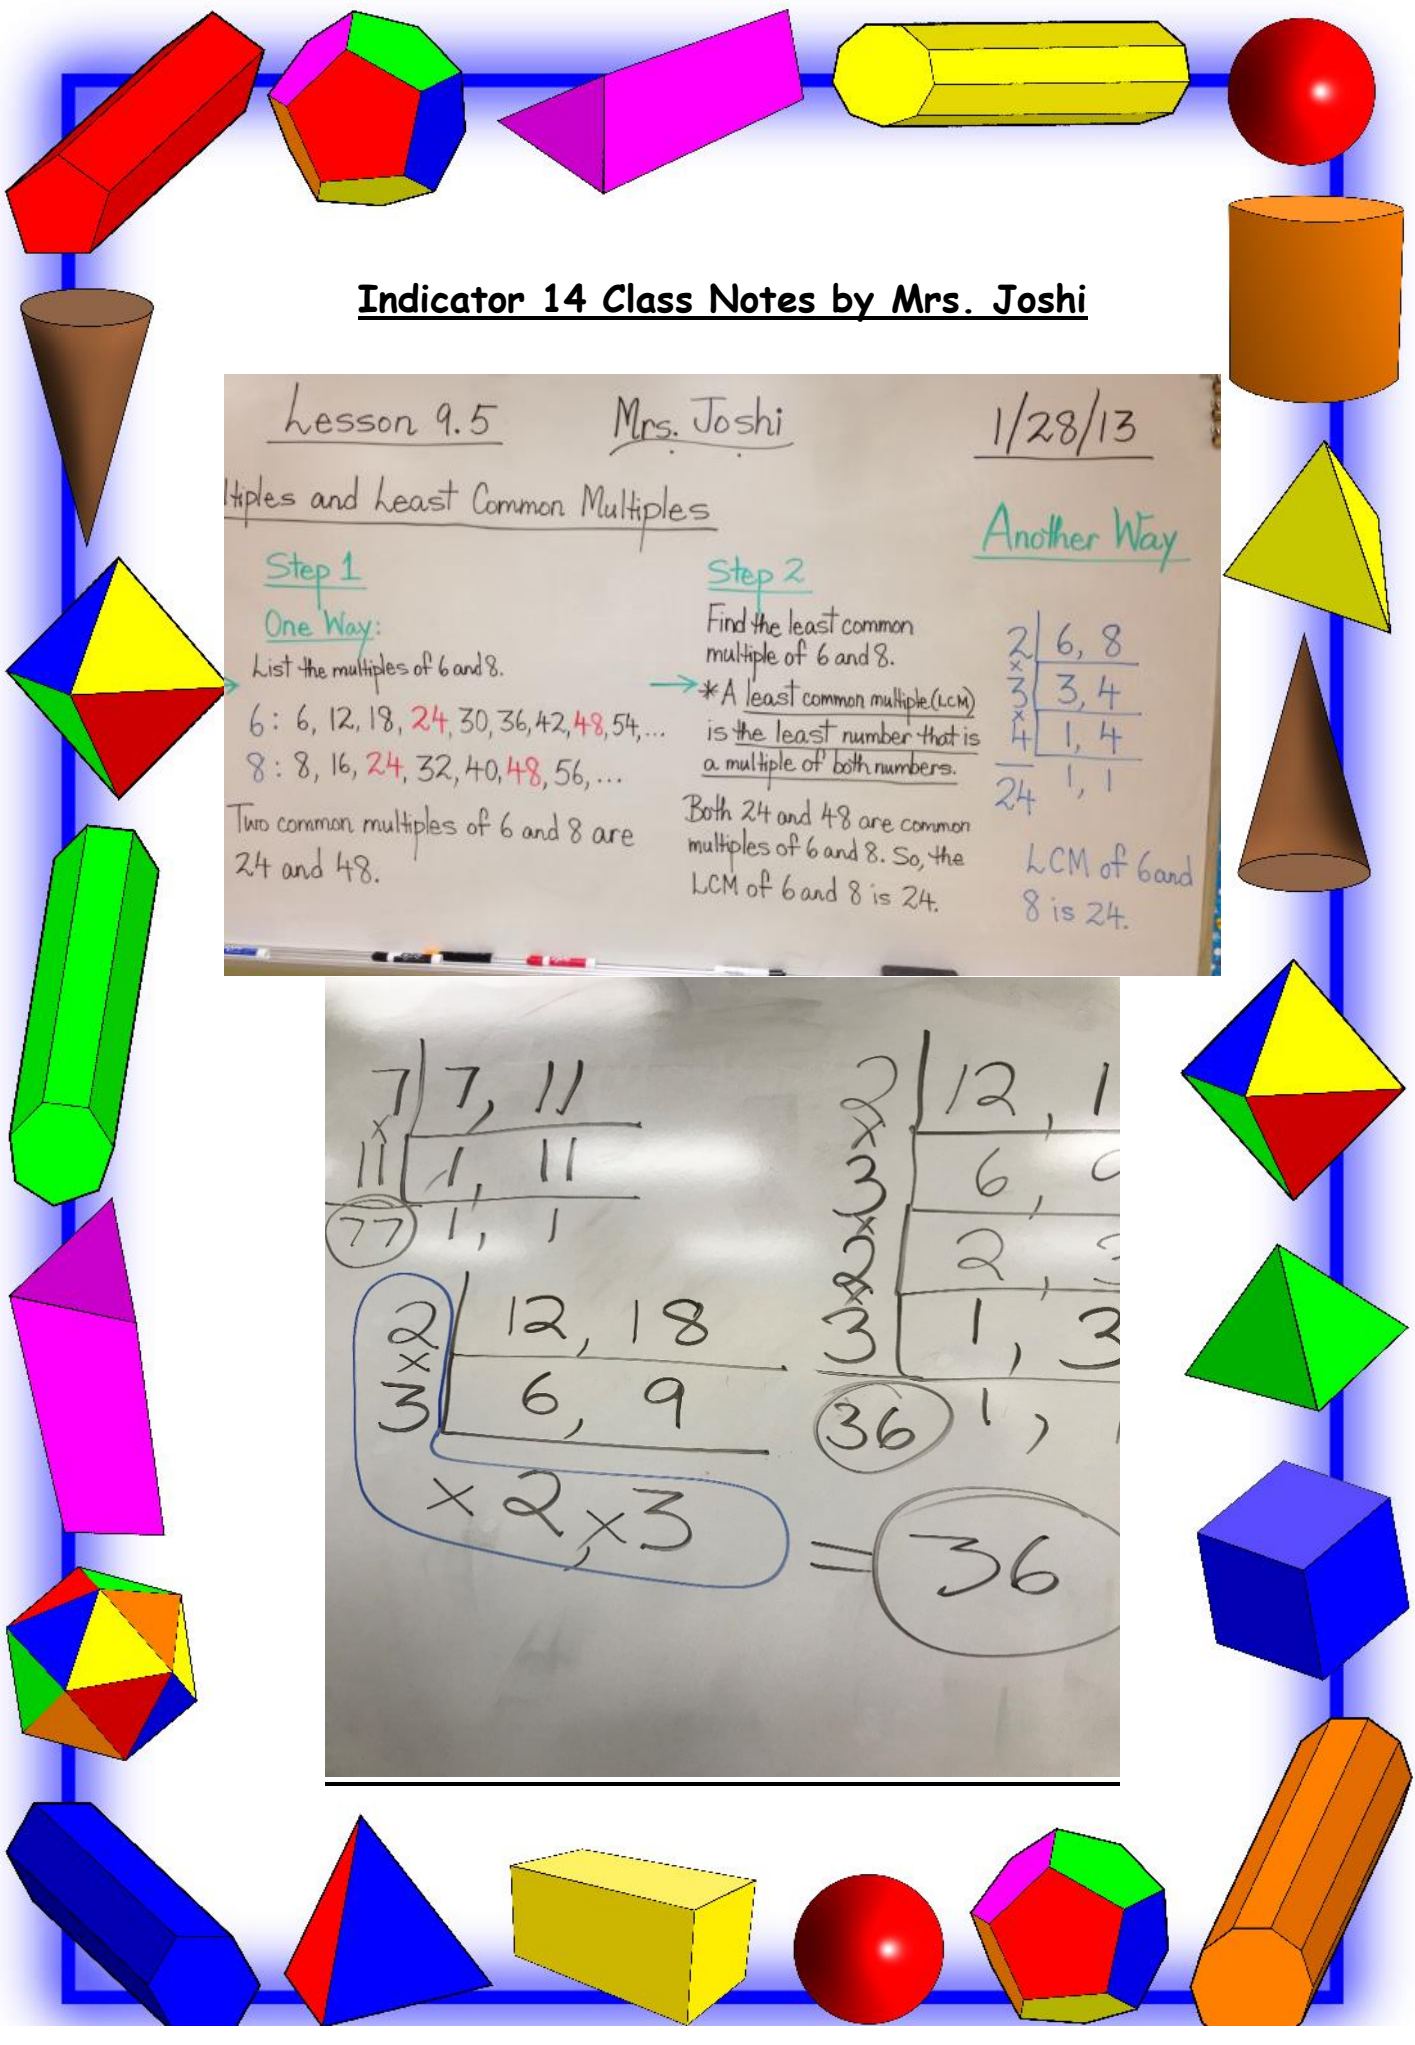 Indicator 14 Class Notes by Mrs. Joshi
Lesson 9.5 Mrs. Joshi 1/28/13
ltiples and Least Common Multiples
Step 1
One Way:
List the multiples of 6 and 8.
6: 6, 12, 18, 24, 30, 36, 42, 48, 54, ...
8: 8, 16, 24, 32, 40, 48, 56, ...
Two common multiples of 6 and 8 are
24 and 48.
Step 2
Find the least common
multiple of 6 and 8.
*A least common multiple (LCM)
is the least number that is
a multiple of both numbers.
Both 24 and 48 are common
multiples of 6 and 8. So, the
LCM of 6 and 8 is 24.
Another Way
2 6, 8
×
3 3, 4
×
4 1, 4
24 1, 1
LCM of 6 and
8 is 24.
7 7, 11
×
11 1, 11
77 1, 1
2 12, 18
×
3 6, 9
× 2, × 3 = 36
2 12, 1
×
3 6,
×
2 2,
×
3 1, 3
36 1, 1